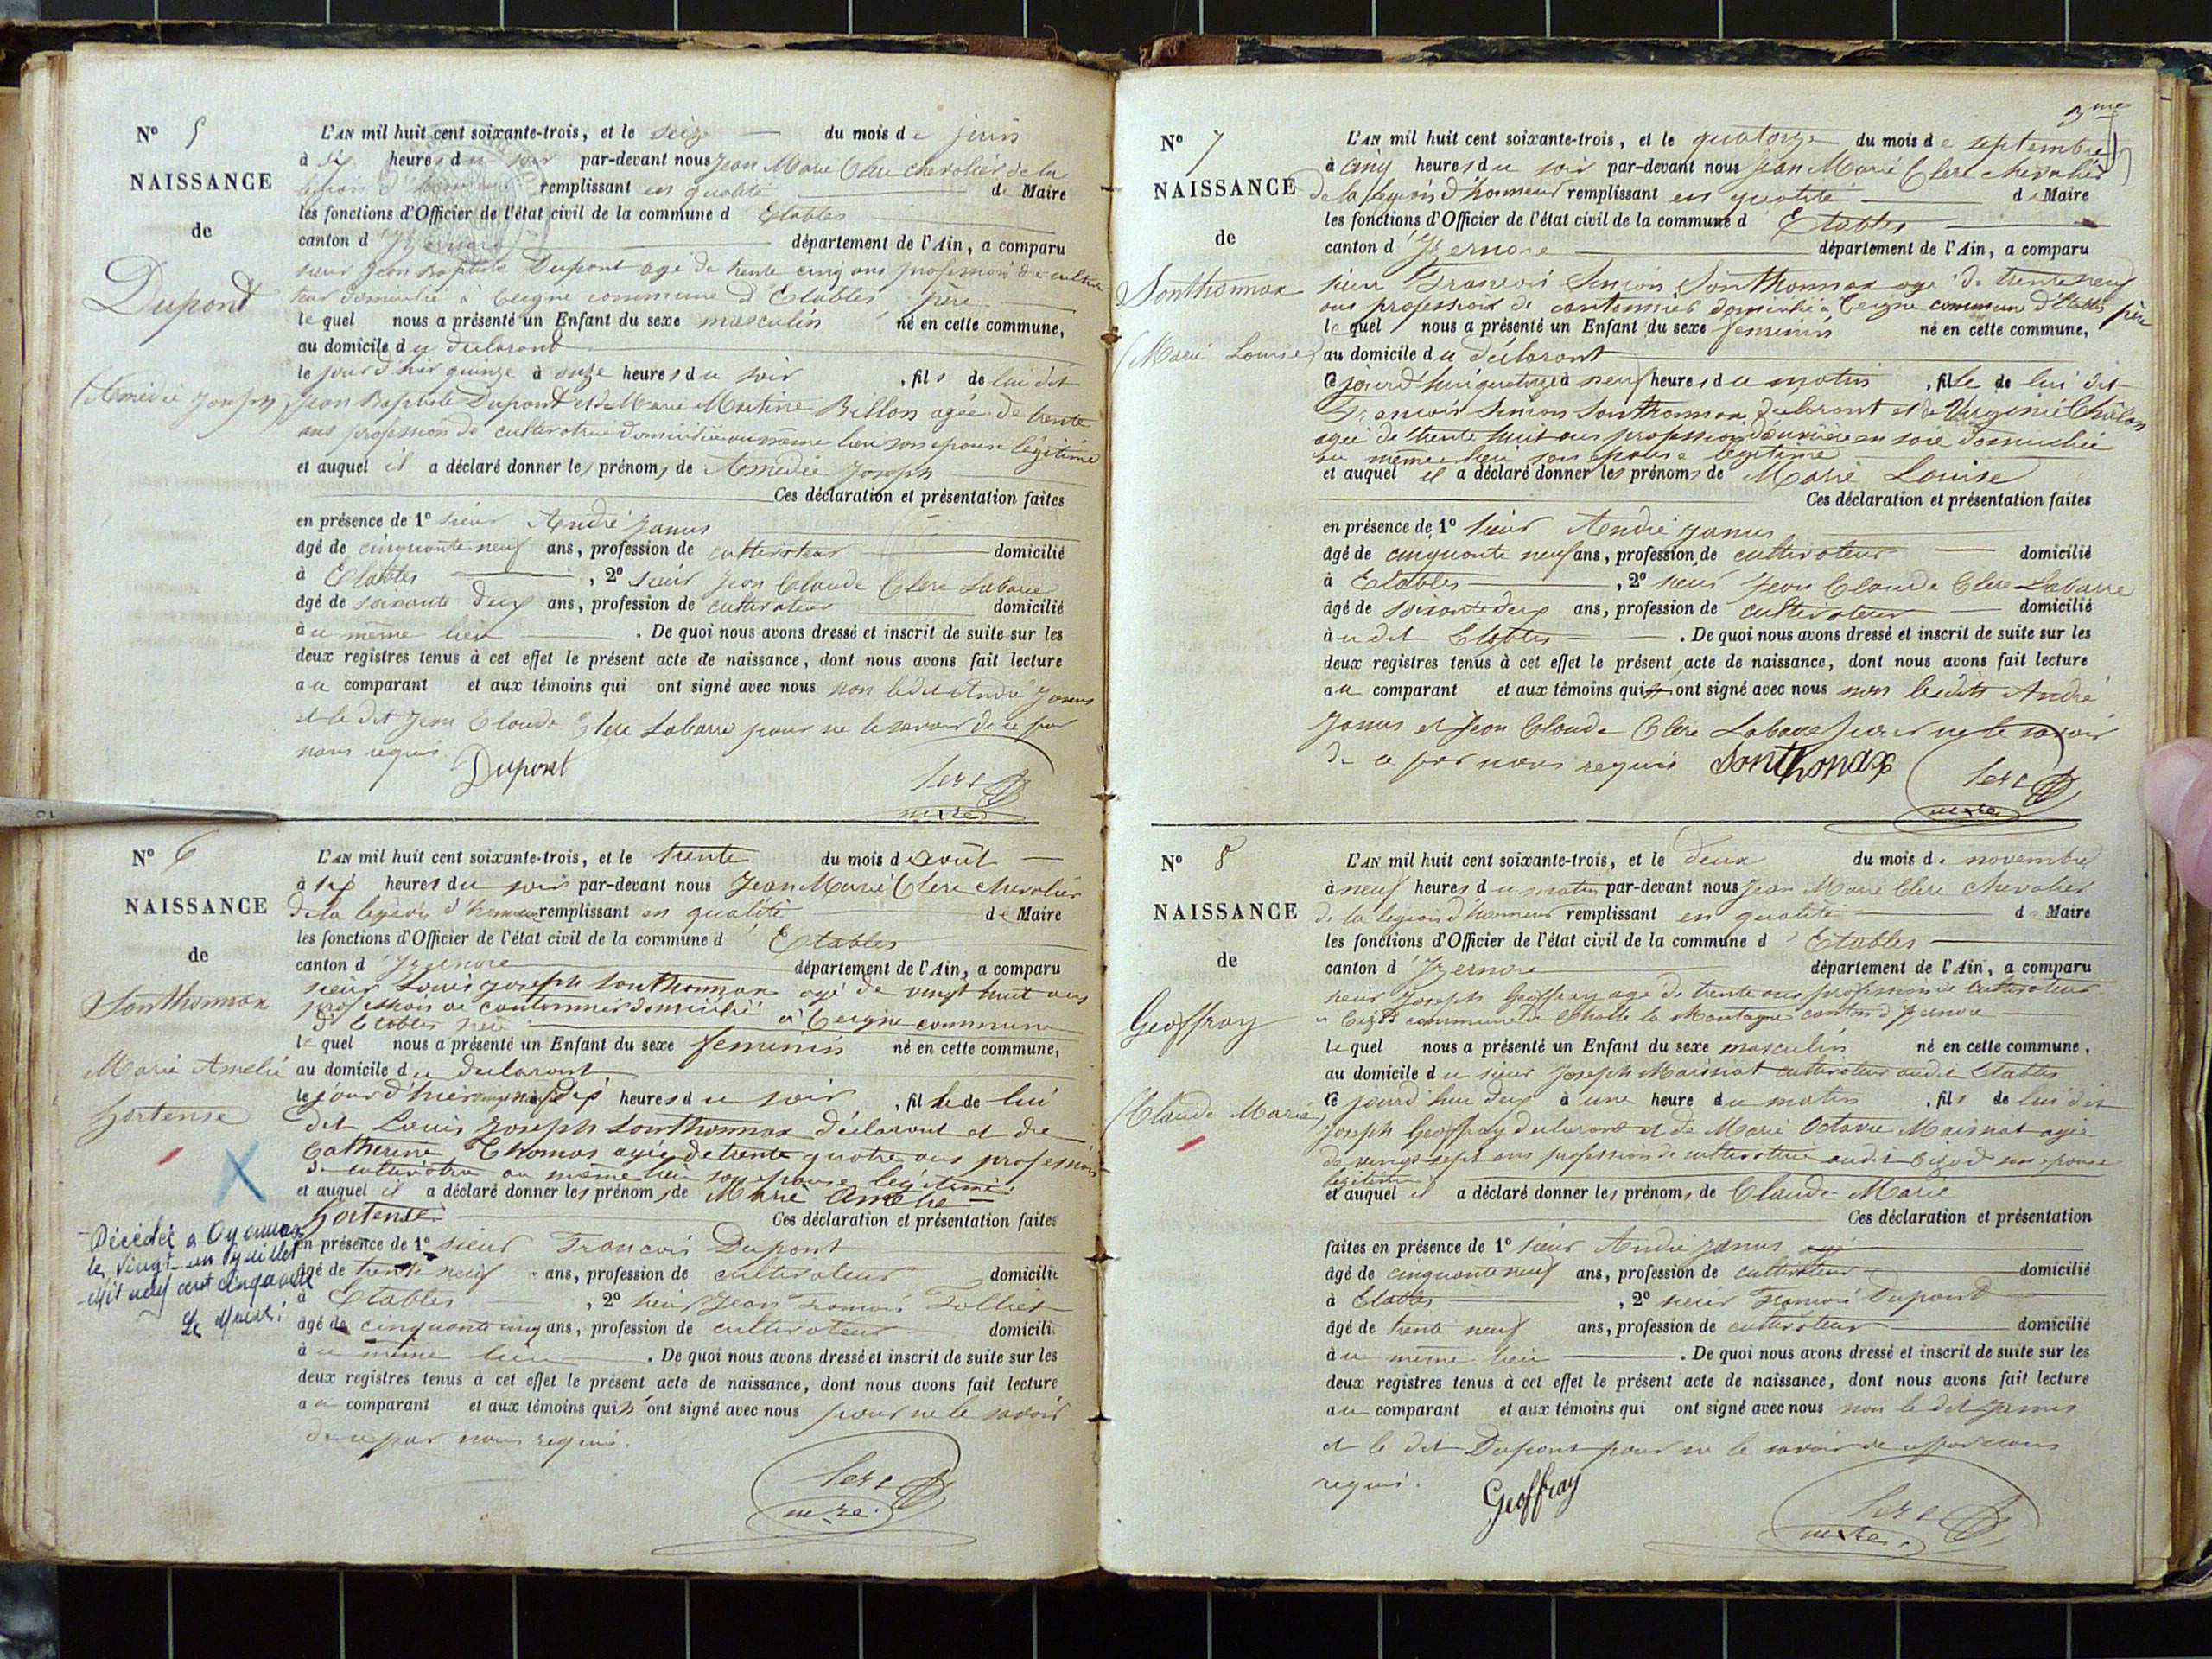 N° 5
NAISSANCE
de
Dupont
(Amédée Joseph)
L'AN mil huit cent soixante-trois, et le seize du mois de juin
à six heures du soir par-devant nous Jean Marie Clerc chevalier de la
légion d'honneur remplissant en qualité de Maire
les fonctions d'Officier de l'état civil de la commune d'Etables
canton d'Izernore département de l'Ain, a comparu
sieur Jean Baptiste Dupont agé de trente cinq ans profession de cultiva
teur domicilié à Ceigne commune d'Etables père
lequel nous a présenté un Enfant du sexe masculin né en cette commune,
au domicile du déclarant
le jour d'hier quinze à onze heures du soir , fils de lui dit
Jean Baptiste Dupont et de Marie Martine Billon agée de trente
ans profession de cultivatrice domiciliée au même lieu son épouse légitime
et auquel il a déclaré donner les prénoms de Amédée Joseph
Ces déclaration et présentation faites
en présence de 1° sieur André Janus
âgé de cinquante neuf ans, profession de cultivateur domicilié
à Etables , 2° sieur Jean Claude Clerc Labarre
âgé de soixante deux ans, profession de cultivateur domicilié
au même lieu . De quoi nous avons dressé et inscrit de suite sur les
deux registres tenus à cet effet le présent acte de naissance, dont nous avons fait lecture
au comparant et aux témoins qui ont signé avec nous non ledit André Janus
et le dit Jean Claude Clerc Labarre pour ne le savoir de ce par
nous requis
Dupont
Clerc
maire
N° 6
NAISSANCE
de
Sonthonnax
Marie Amélie
Hortense
Décédée à Oyonnax
le vingt-un juillet
mil neuf cent cinquante
Le Maire:
L'AN mil huit cent soixante-trois, et le trente du mois d'août
à six heures du soir par-devant nous Jean Marie Clerc chevalier
de la légion d'honneur remplissant en qualité de Maire
les fonctions d'Officier de l'état civil de la commune d'Etables
canton d'Izernore département de l'Ain, a comparu
sieur Louis Joseph Sonthonnax agé de vingt huit ans
profession de cantonnier domicilié à Ceigne commune
d'Etables père
lequel nous a présenté un Enfant du sexe feminin né en cette commune,
au domicile du déclarant
le jour d'hier vingt neuf à dix heures du soir , fille de lui
dit Louis Joseph Sonthonnax déclarant et de
Catherine Thomas agée de trente quatre ans profession
de cultivatrice au même lieu son épouse légitime
et auquel il a déclaré donner les prénoms de Marie Amélie
Hortense Ces déclaration et présentation faites
en présence de 1° sieur François Dupont
âgé de trente neuf ans, profession de cultivateur domicilié
à Etables , 2° sieur Jean François
âgé de cinquante cinq ans, profession de cultivateur domicilié
au même lieu . De quoi nous avons dressé et inscrit de suite sur les
deux registres tenus à cet effet le présent acte de naissance, dont nous avons fait lecture
au comparant et aux témoins qui n'ont signé avec nous pour ne le savoir
de ce par nous requis.
Clerc
maire
3me
N° 7
NAISSANCE
de
Sonthonnax
(Marie Louise)
L'AN mil huit cent soixante-trois, et le quatorze du mois de septembre
à cinq heures du soir par-devant nous Jean Marie Clerc chevalier
de la légion d'honneur remplissant en qualité de Maire
les fonctions d'Officier de l'état civil de la commune d'Etables
canton d'Izernore département de l'Ain, a comparu
sieur François Simon Sonthonnax agé de trente neuf
ans profession de cantonnier domicilié à Ceigne commune d'Etables père
lequel nous a présenté un Enfant du sexe feminin né en cette commune,
au domicile du déclarant
ce jourd'hui quatorze à neuf heures du matin , fille de lui dit
François Simon Sonthonnax déclarant et de Virginie
agée de trente huit ans profession d'ouvrière en soie domiciliée
au même lieu son épouse légitime
et auquel il a déclaré donner les prénoms de Marie Louise
Ces déclaration et présentation faites
en présence de 1° sieur André Janus
âgé de cinquante neuf ans, profession de cultivateur domicilié
à Etables , 2° sieur Jean Claude Clerc Labarre
âgé de soixante deux ans, profession de cultivateur domicilié
au dit Etables . De quoi nous avons dressé et inscrit de suite sur les
deux registres tenus à cet effet le présent acte de naissance, dont nous avons fait lecture
au comparant et aux témoins qui ont signé avec nous non lesdits André
Janus et Jean Claude Clerc Labarre pour ne le savoir
de ce par nous requis Sonthonax
Clerc
maire
N° 8
NAISSANCE
de
Geoffray
(Claude Marie)
L'AN mil huit cent soixante-trois, et le deux du mois de novembre
à neuf heures du matin par-devant nous Jean Marie Clerc chevalier
de la légion d'honneur remplissant en qualité de Maire
les fonctions d'Officier de l'état civil de la commune d'Etables
canton d'Izernore département de l'Ain, a comparu
sieur Joseph Geoffray agé de trente ans profession de cultivateur
à commune de la Montagne canton d'Izernore
lequel nous a présenté un Enfant du sexe masculin né en cette commune,
au domicile du sieur Joseph Maissiat cultivateur audit Etables
ce jourd'hui deux à une heure du matin , fils de lui dit
Joseph Geoffray déclarant et de Marie Octavie Maissiat agée
de vingt sept ans profession de cultivatrice audit son épouse
légitime
et auquel il a déclaré donner les prénoms de Claude Marie
Ces déclaration et présentation
faites en présence de 1° sieur André Janus
âgé de cinquante neuf ans, profession de cultivateur domicilié
à Etables , 2° sieur François Dupont
âgé de trente neuf ans, profession de cultivateur domicilié
au même lieu . De quoi nous avons dressé et inscrit de suite sur les
deux registres tenus à cet effet le présent acte de naissance, dont nous avons fait lecture
au comparant et aux témoins qui ont signé avec nous non le dit Janus
et le dit Dupont pour ne le savoir de ce par nous
requis.
Geoffray
Clerc
maire